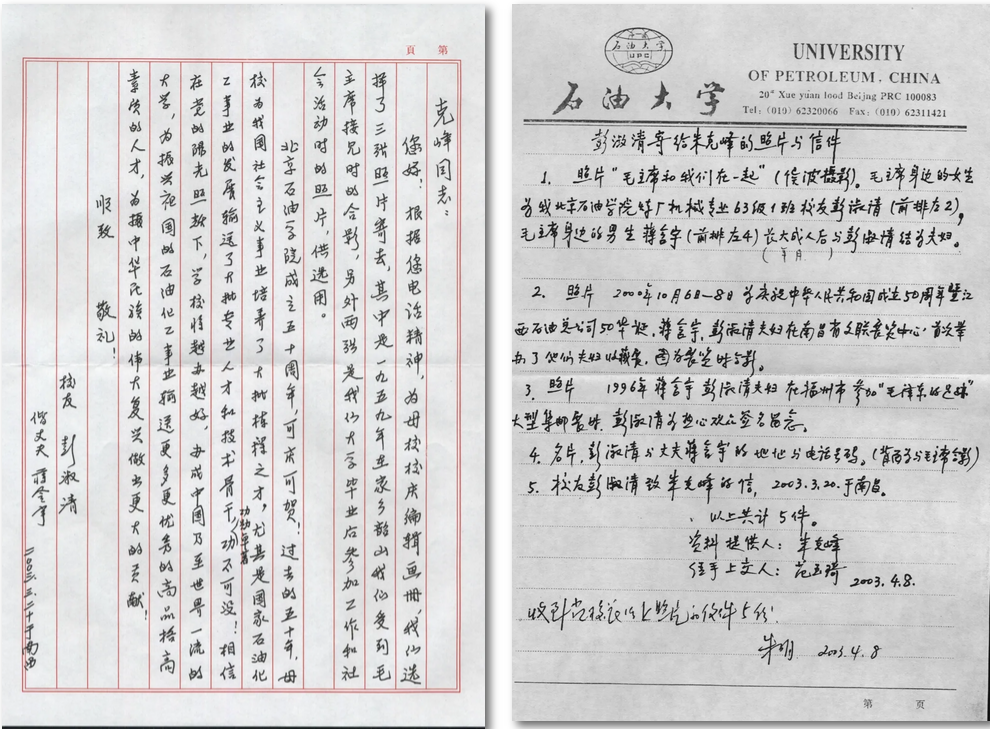 第 頁
克峰同志：
您好！根据您电话精神，为母校校庆编辑画册，我们选
择了三张照片寄去，其中是一九五九年在家乡韶山我们受到毛
主席接见时的合影，另外两张是我们大学毕业后参加工作和社
会活动时的照片，供选用。
北京石油学院成立五十周年，可庆可贺！过去的五十年，母
校为我国社会主义事业培养了大批栋梁之才，尤其是国家石油化
工事业的发展输送了大批专业人才和技术骨干，功不可没！相信
功勋卓著
在党的阳光照耀下，学校将越办越好，办成中国乃至世界一流的
大学，为振兴祖国的石油化工事业输送更多更优秀的高品格高
素质的人才，为振中华民族的伟大复兴做出更大的贡献！
顺致
敬礼！
校友 彭淑清
偕丈夫 蒋含宇
二〇〇三.三.二十于南昌
石油大学
UPC
UNIVERSITY
OF PETROLEUM, CHINA
石油大学
20# Xue yuan load Beijng PRC 100083
Tel: (010) 62320066 Fax: (010) 62311421
彭淑清寄给朱克峰的照片与信件
1. 照片"毛主席和我们在一起"（侯波摄影）。毛主席身边的女生
为我北京石油学院炼厂机械专业63级1班校友彭淑清（前排左2），
毛主席身边的男生蒋含宇（前排左4）长大成人后与彭淑清结为夫妇。
2. 照片 2000年10月6日—8日为庆祝中华人民共和国成立50周年暨江
西石油总公司50华诞，蒋含宇、彭淑清夫妇在南昌省文联展览中心首次举
办了他们夫妇收藏展，图为展览时合影。
3. 照片 1996年蒋含宇彭淑清夫妇在福州市参加"毛泽东的足迹"
大型集邮展时，彭淑清为热心观众签名留念。
4. 名片，彭淑清与丈夫蒋含宇的地址与电话号码。（背面为与毛主席合影）
5. 校友彭淑清致朱克峰的信，2003.3.20.于南昌。
以上共计5件。
资料提供人：朱克峰
经手上交人：范玉琦 2003.4.8.
收到 以上照片和信件5份！
朱明 2003.4.8
第 页